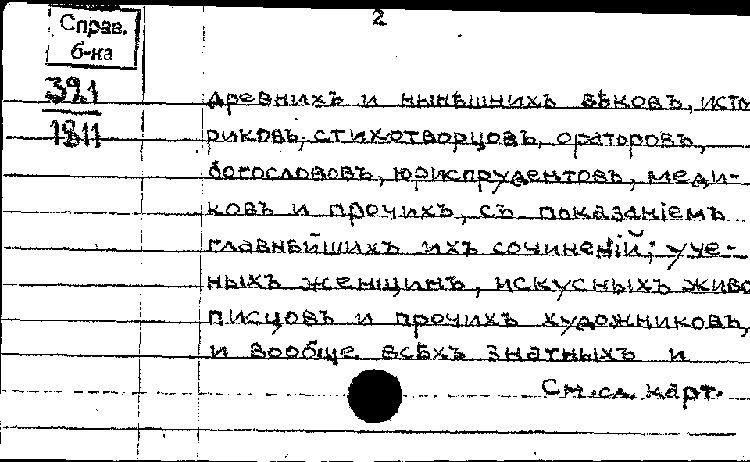 2
Справ.
б-ка
391
1811
древнихъ и нынѣшнихъ вѣковъ, исто
риковъ, стихотворцовъ, ораторовъ,
богослововъ, юриспрудентовъ, меди-
ковъ и прочихъ, съ показаніемъ
главнѣйшихъ ихъ сочиненій; уче-
ныхъ женщинъ, искусныхъ живо
писцовъ и прочихъ художниковъ,
и вообще всѣхъ знатныхъ и
См. сл. карт.